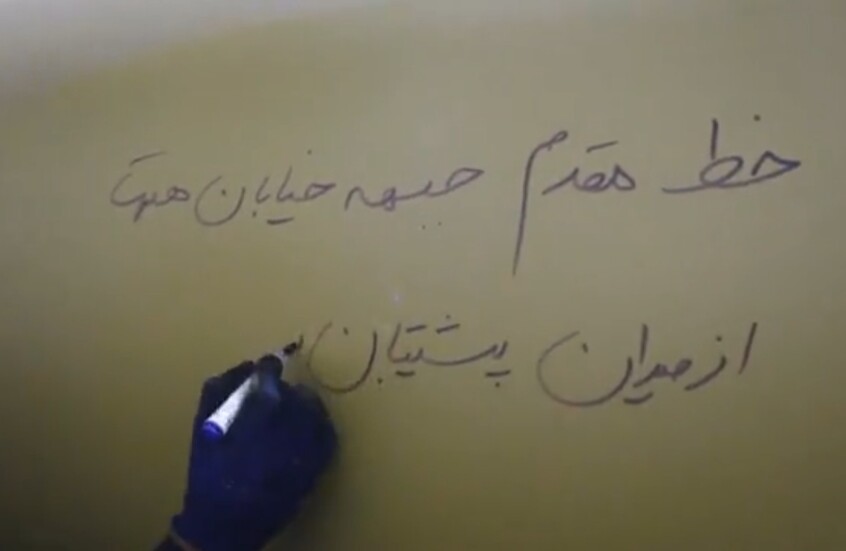 خط مقدم جبهه خیابان
از میدان پشتیبان